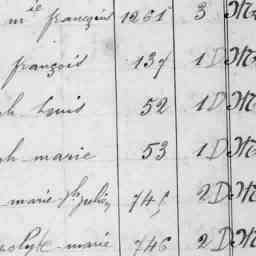 m ie françois 1261 3 M
françois 137 1 D M
ph Louis 52 1 D M
ph marie 53 1 D M
marie ph julien 746 2 D M
polyte marie 746 2 D M